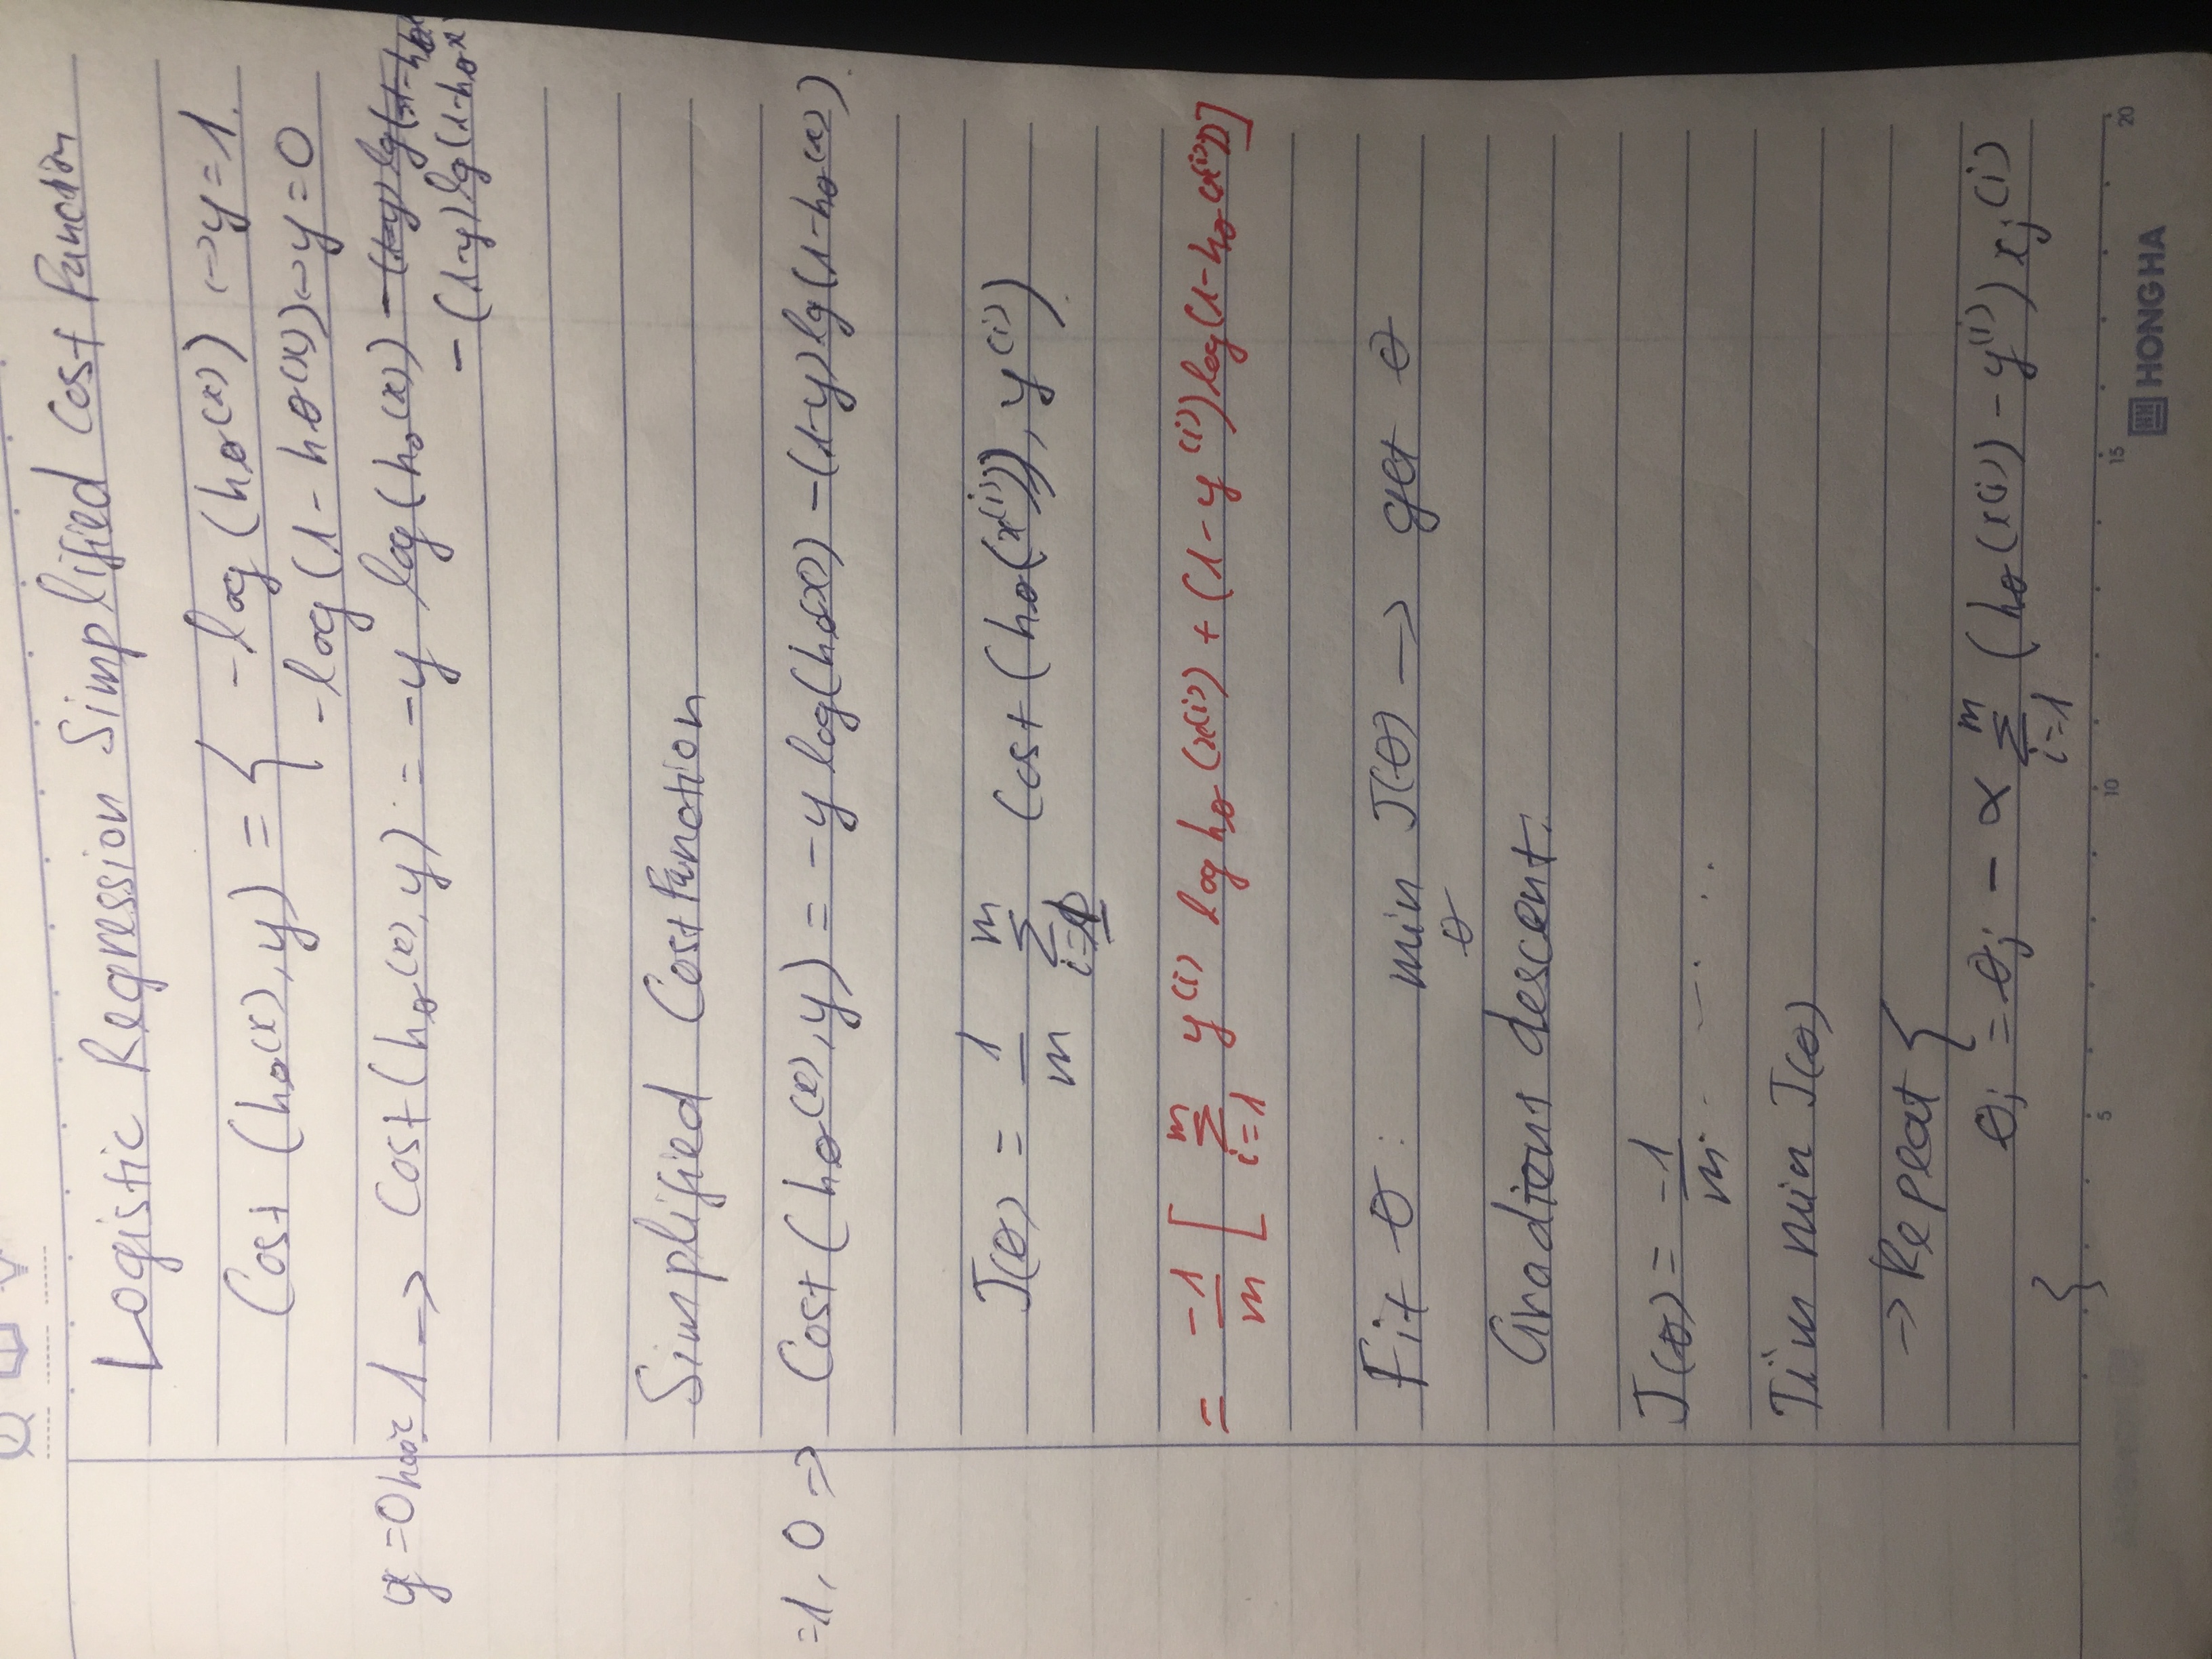 Logistic Regression Simplified Cost Function
Cost (hθ(x), y) = { -log (hθ(x)) ↔ y = 1.
-log (1 - hθ(x)) ↔ y = 0
y = 0 hoặc 1 → Cost (hθ(x), y) = -y log (hθ(x))
- (1-y) lg (1-hθx
Simplified Cost Function
=1, 0 → Cost (hθ(x), y) = -y log(hθ(x)) - (1-y) lg (1-hθ(x)).
J(θ) = 1/m Σ_{i=1}^{m} Cost (hθ(x^(i)), y^(i)).
= -1/m [ Σ_{i=1}^{m} y^(i) log hθ(x^(i)) + (1-y^(i)) log(1-hθ(x^(i))]
Fit θ : min_θ J(θ) → get θ
Gradient descent:
J(θ) = -1/m . . . . .
Tìm min J(θ)
→ Repeat {
θj = θj - α Σ_{i=1}^{m} (hθ(x(i)) - y^(i)) xj^(i)
}
5 10 15 20
HH HONG HA